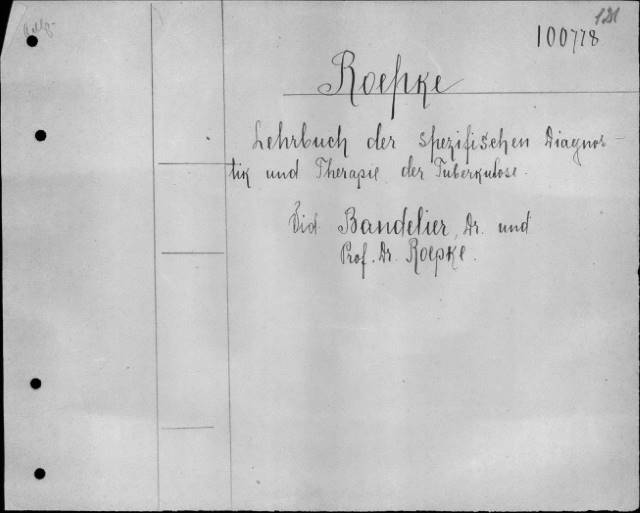 121
100778
Roepke
Lehrbuch der spezifischen Diagnos-
tik und Therapie der Tuberkulose.
Vid. Bandelier, Dr. und
Prof. Dr. Roepke.